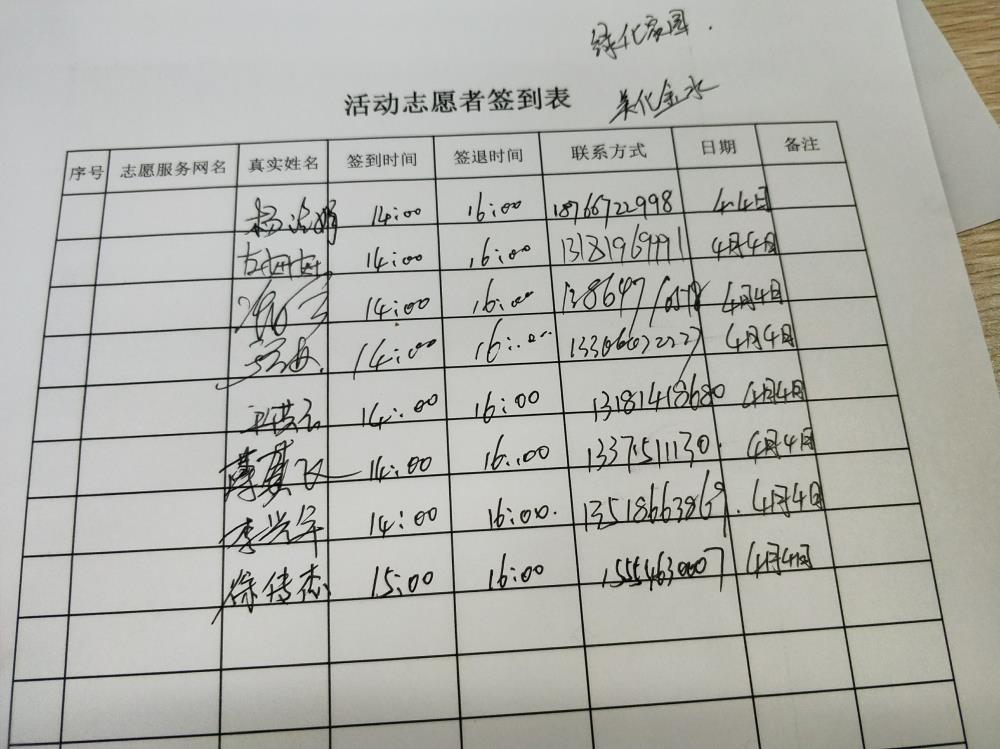 绿化家园.
活动志愿者签到表 美化金水
序号 志愿服务网名 真实姓名 签到时间 签退时间 联系方式 日期 备注
14:00 16:00 18766722998 4.4日
14:00 16:00 13181969991 4月4日
14:00 16:00 4月4日
14:00 16:00 4月4日
14:00 16:00 13181418680 4月4日
14:00 16:00 1337511130. 4月4日
李兴军 14:00 16:00. 13518663869. 4月4日
徐传杰 15:00 16:00 15554630007 4月4日